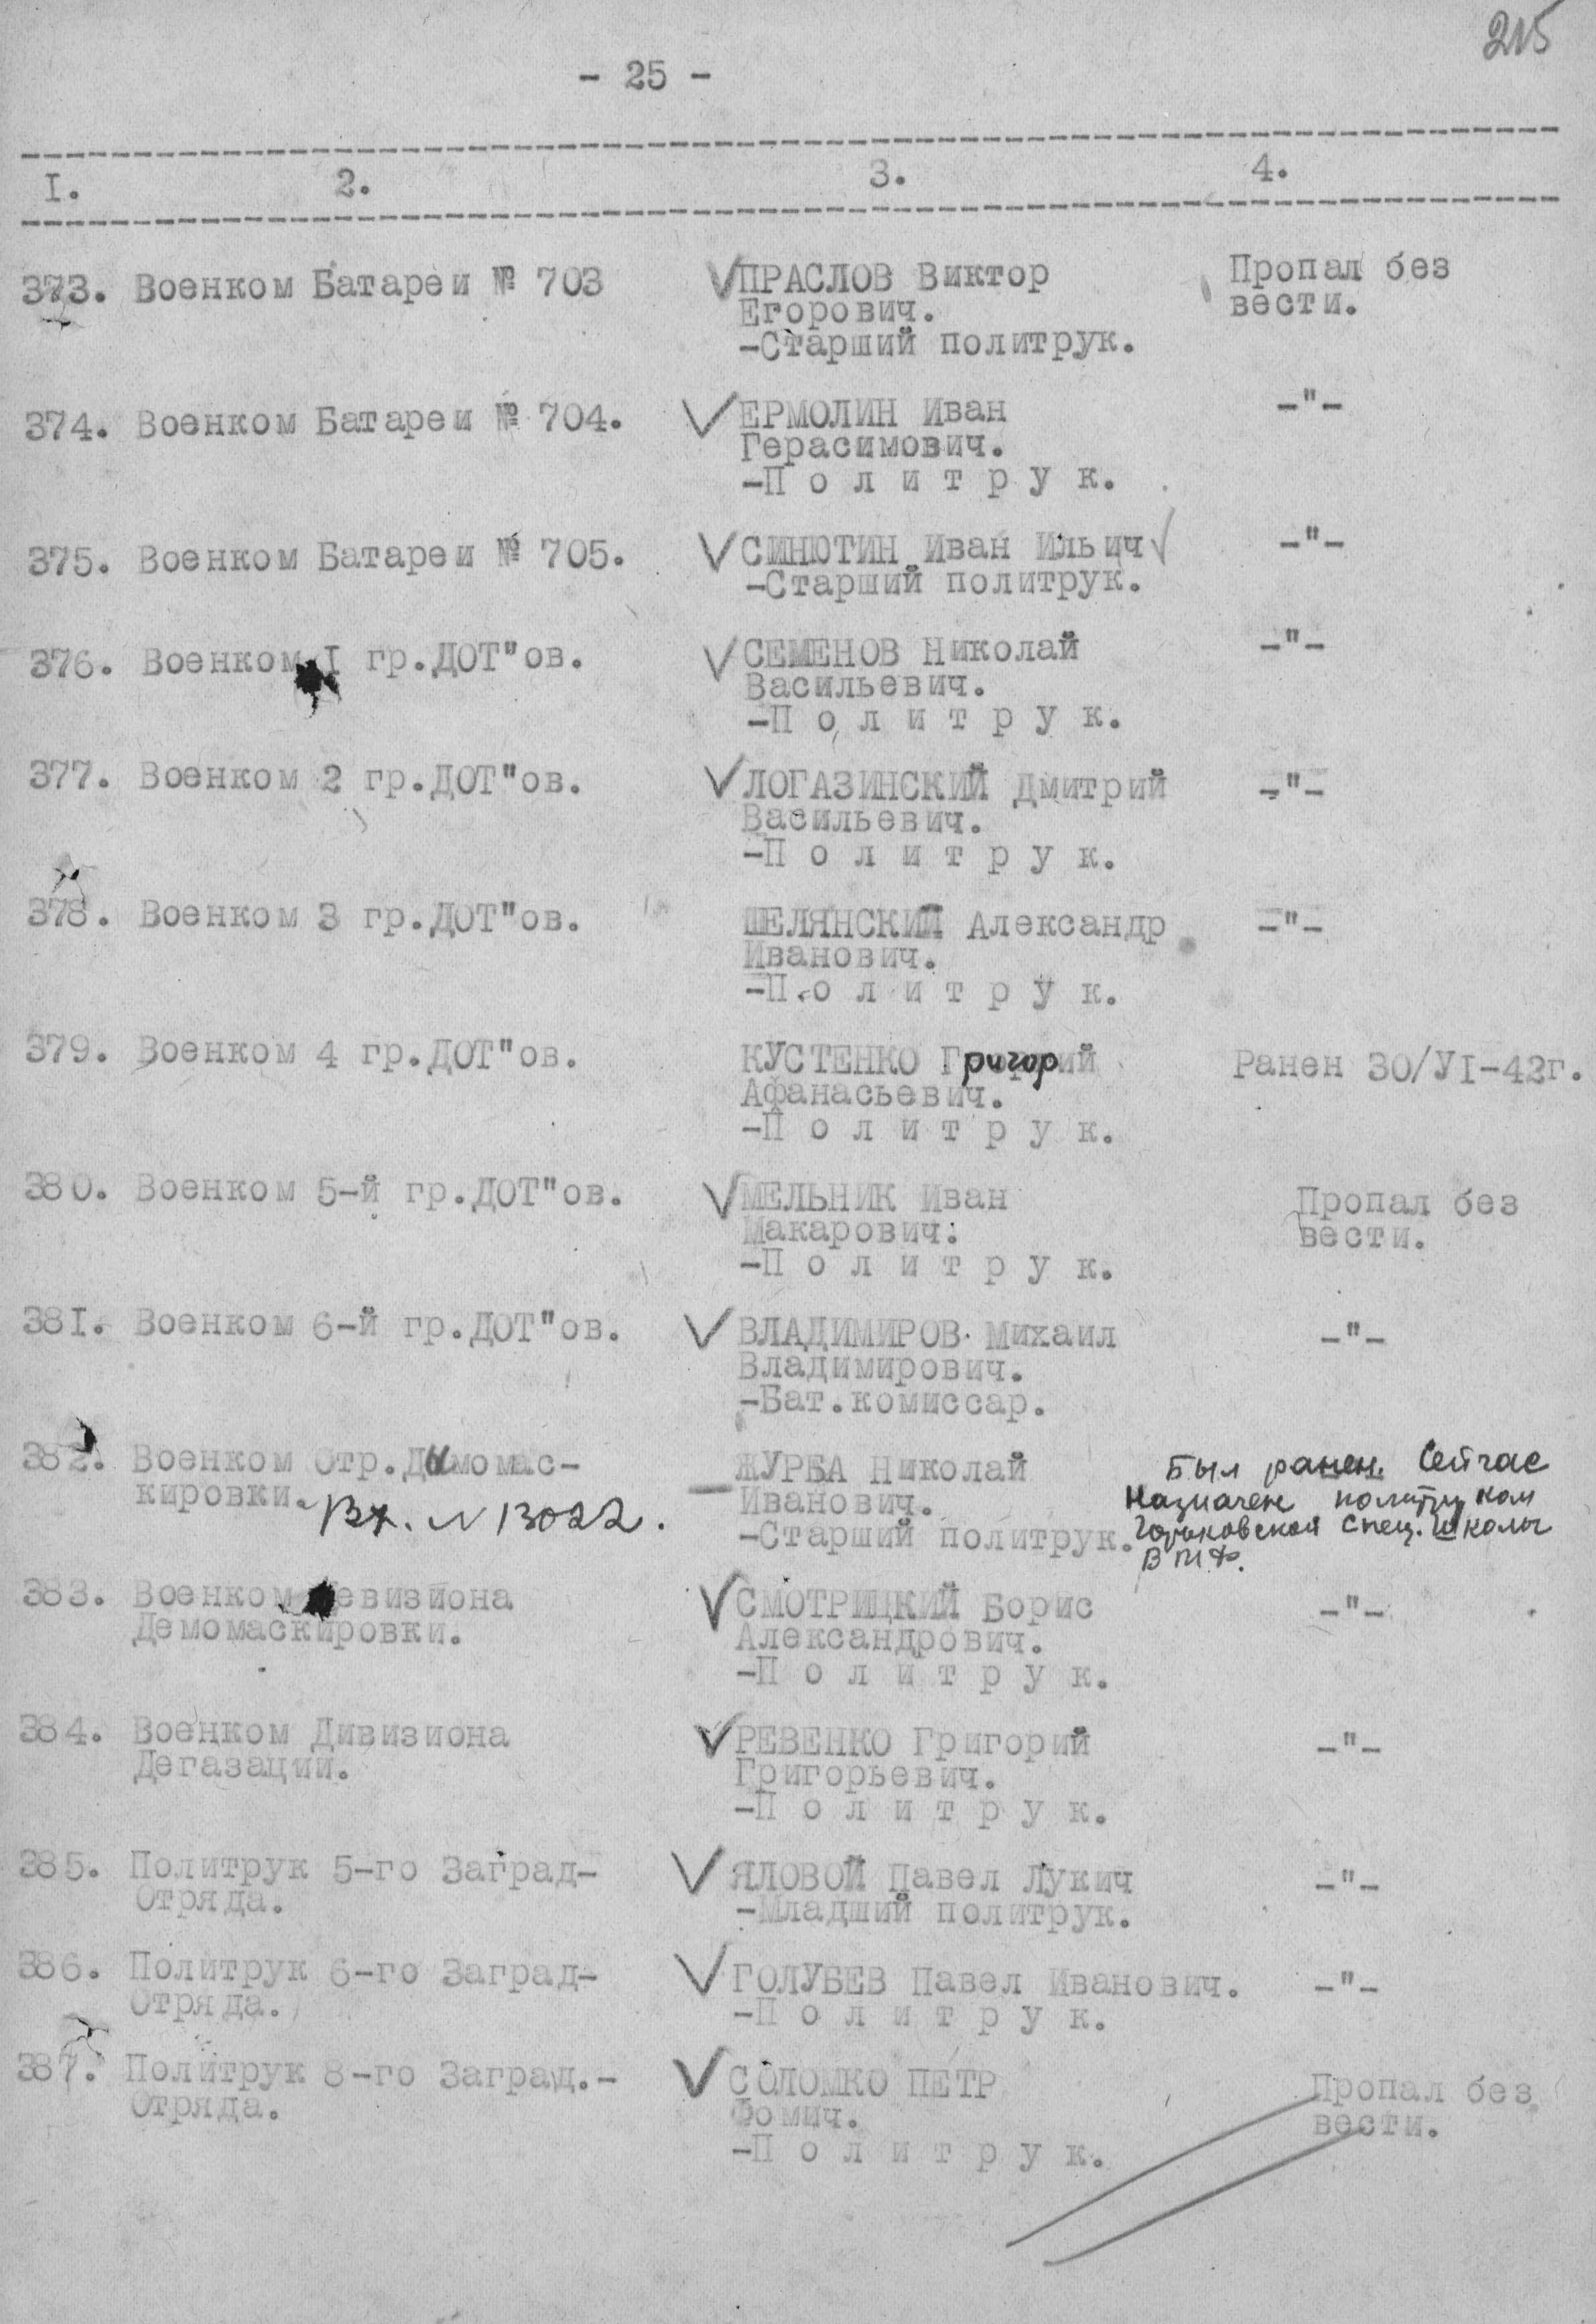 215
- 25 -
I. 2. 3. 4.
373. Военком Батареи № 703 ПРАСЛОВ Виктор Пропал без
Егорович. вести.
-Старший политрук.
374. Военком Батареи № 704. ЕРМОЛИН Иван -"-
Герасимович.
-П о л и т р у к.
375. Военком Батареи № 705. СИНЮТИН Иван Ильич -"-
-Старший политрук.
376. Военком I гр.ДОТ"ов. СЕМЕНОВ Николай -"-
Васильевич.
-П о л и т р у к.
377. Военком 2 гр.ДОТ"ов. ЛОГАЗИНСКИЙ Дмитрий -"-
Васильевич.
-П о л и т р у к.
378. Военком 3 гр.ДОТ"ов. ШЕЛЯНСКИЙ Александр -"-
Иванович.
-П о л и т р у к.
379. Военком 4 гр.ДОТ"ов. КУСТЕНКО Григорий Ранен 30/УI-42г.
Афанасьевич.
-П о л и т р у к.
380. Военком 5-й гр.ДОТ"ов. МЕЛЬНИК Иван Пропал без
Макарович. вести.
-П о л и т р у к.
381. Военком 6-й гр.ДОТ"ов. ВЛАДИМИРОВ Михаил -"-
Владимирович.
-Бат.комиссар.
382. Военком Отр.Дымомас- ЖУРБА Николай Был ранен. Сейчас
кировки. Вх. N 13022. Иванович. Назначен политруком
-Старший политрук. Горьковской спец. школы
ВМФ.
383. Военком евизиона СМОТРИЦКИЙ Борис -"-
Демомаскировки. Александрович.
-П о л и т р у к.
384. Военком Дивизиона РЕВЕНКО Григорий -"-
Дегазации. Григорьевич.
-П о л и т р у к.
385. Политрук 5-го Заград- ЯЛОВОЙ Павел Лукич -"-
Отряда. -Младший политрук.
386. Политрук 6-го Заград- ГОЛУБЕВ Павел Иванович. -"-
Отряда. -П о л и т р у к.
387. Политрук 8-го Заград.- СОЛОМКО ПЕТР Пропал без
Отряда. Фомич. вести.
-П о л и т р у к.